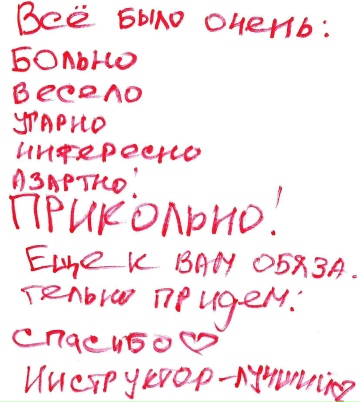 Всё было очень:
Больно
весело
угарно
интересно
азартно!
ПРИКОЛЬНО!
Еще к вам обяза.
тельно придем:
спасибо♡
Инструктор-лучший♡